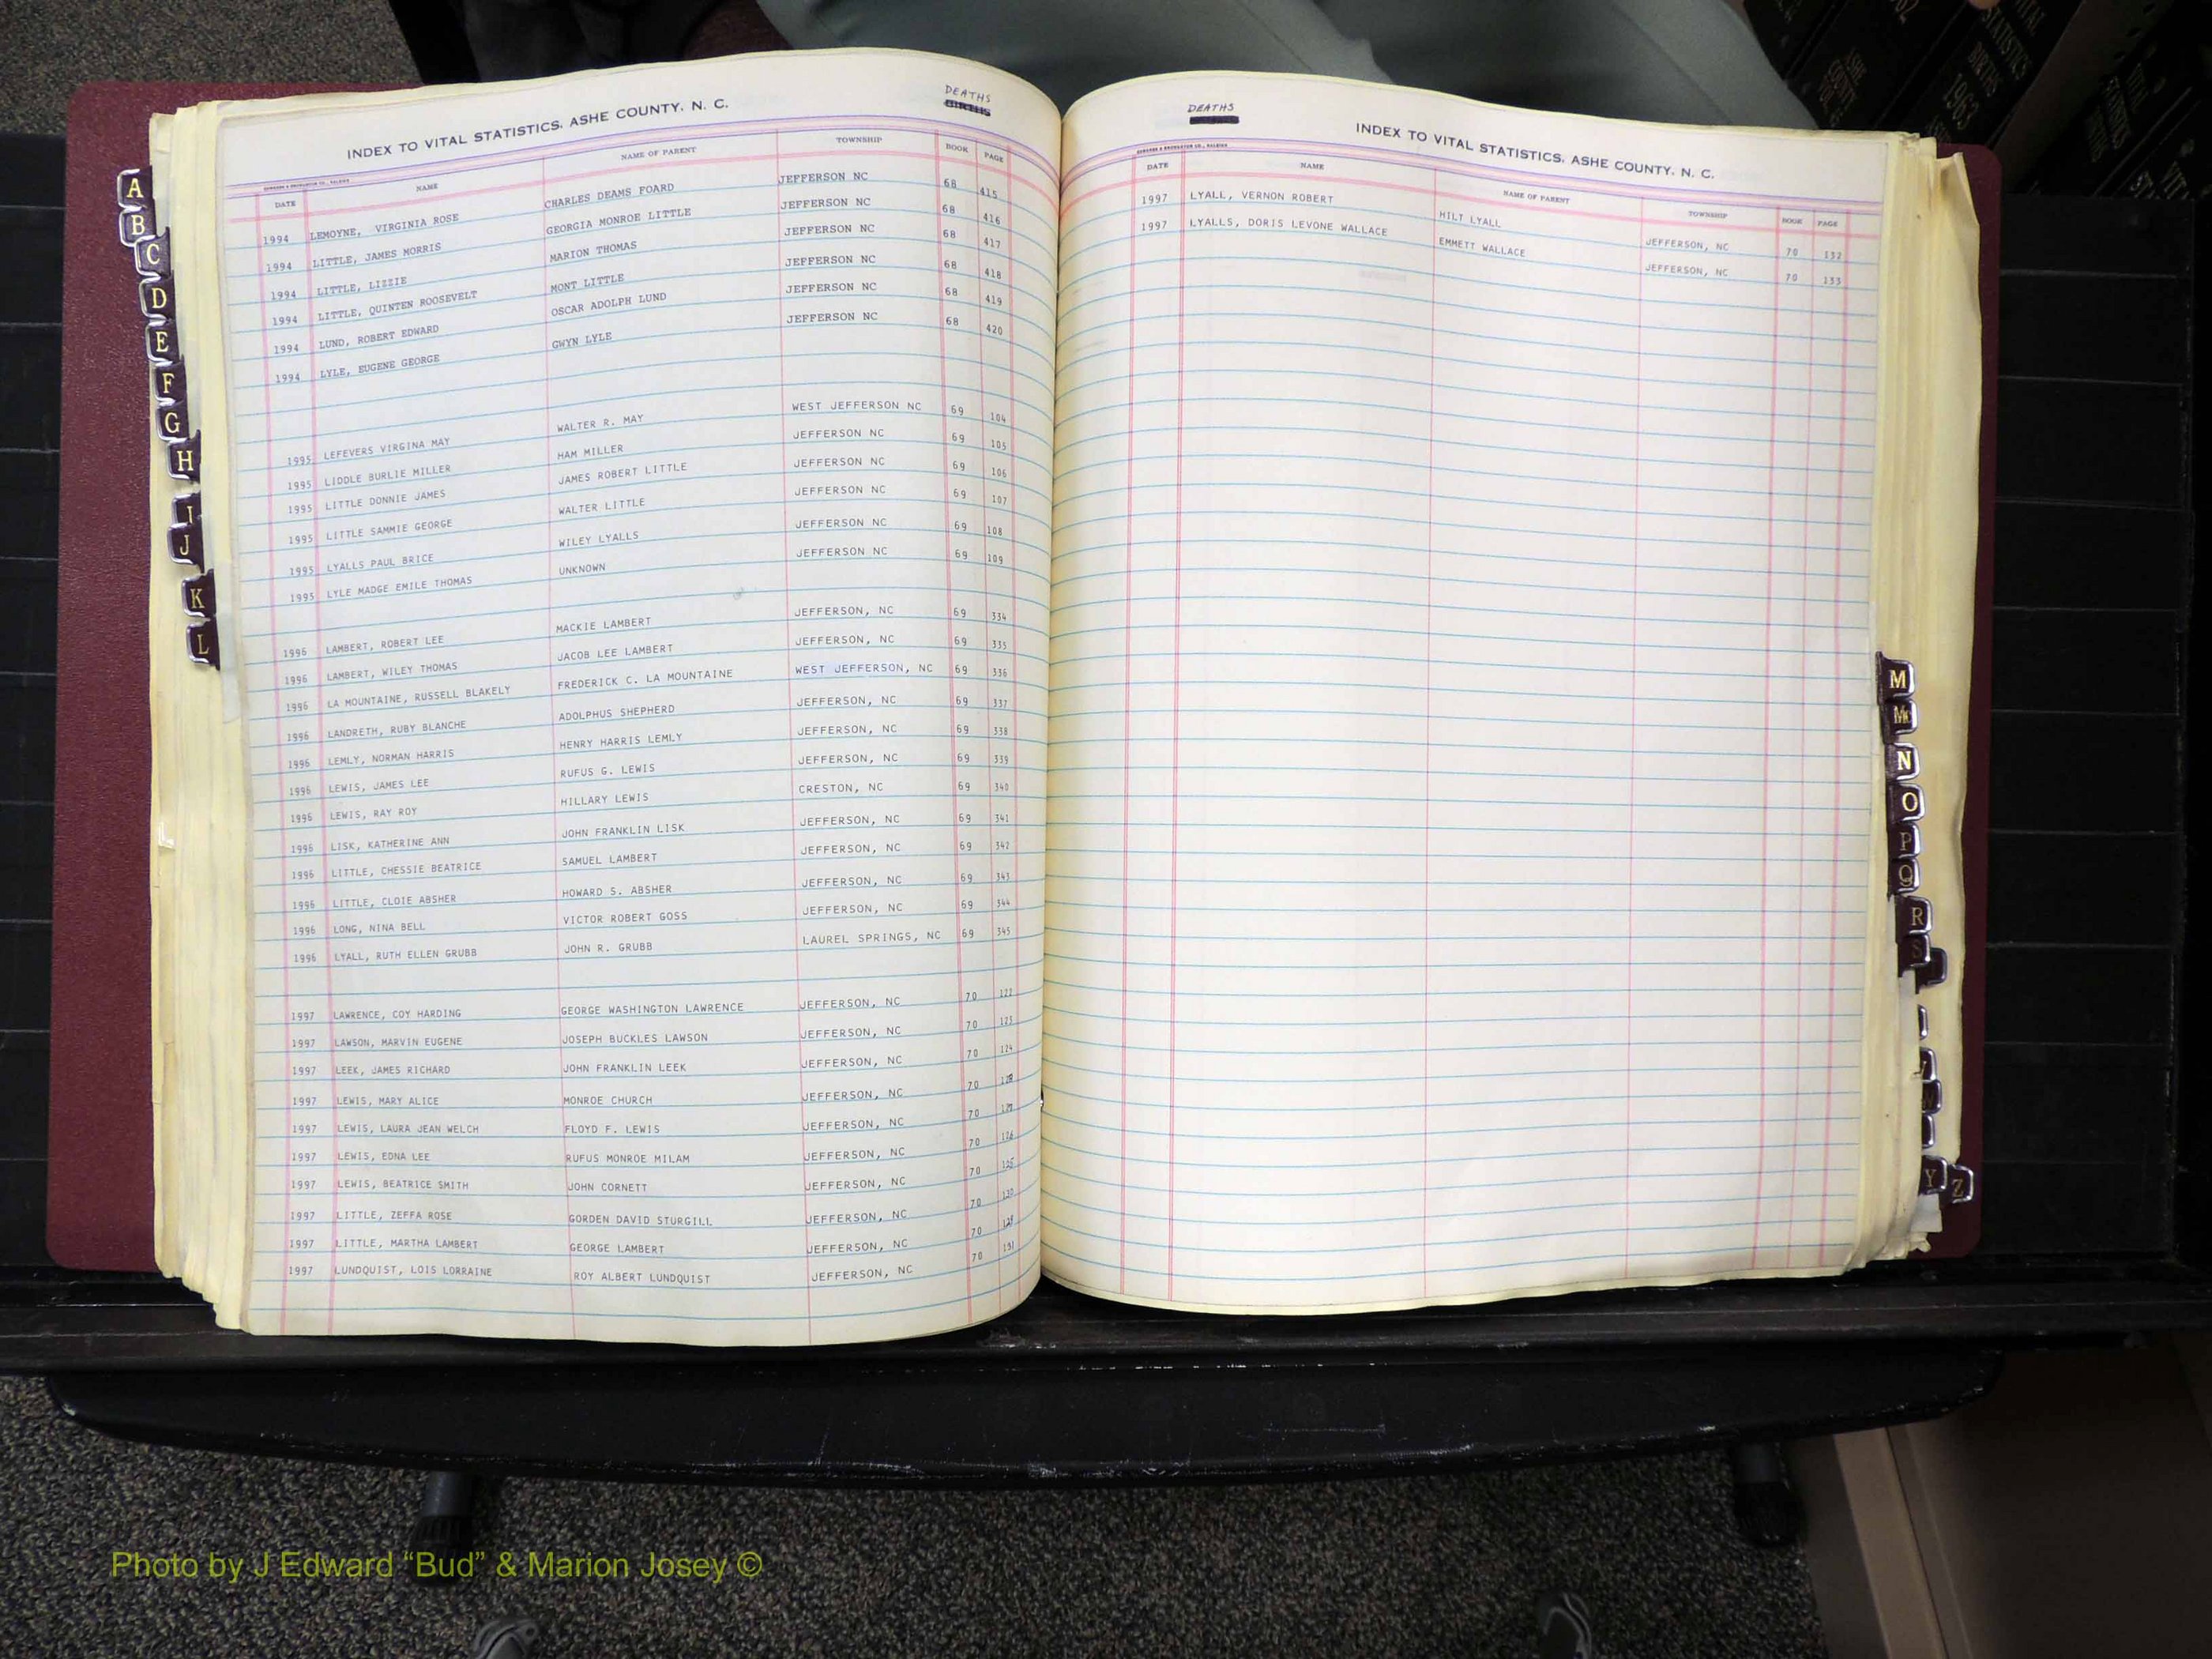 DEATHS
INDEX TO VITAL STATISTICS, ASHE COUNTY, N. C.
DATE NAME NAME OF PARENT TOWNSHIP BOOK PAGE
1994 LEMOYNE, VIRGINIA ROSE CHARLES DEAMS FOARD JEFFERSON NC 68 415
1994 LITTLE, JAMES MORRIS GEORGIA MONROE LITTLE JEFFERSON NC 68 416
1994 LITTLE, LIZZIE MARION THOMAS JEFFERSON NC 68 417
1994 LITTLE, QUINTEN ROOSEVELT MONT LITTLE JEFFERSON NC 68 418
1994 LUND, ROBERT EDWARD OSCAR ADOLPH LUND JEFFERSON NC 68 419
1994 LYLE, EUGENE GEORGE GWYN LYLE JEFFERSON NC 68 420
1995 LEFEVERS VIRGINA MAY WALTER R. MAY WEST JEFFERSON NC 69 104
1995 LIDDLE BURLIE MILLER HAM MILLER JEFFERSON NC 69 105
1995 LITTLE DONNIE JAMES JAMES ROBERT LITTLE JEFFERSON NC 69 106
1995 LITTLE SAMMIE GEORGE WALTER LITTLE JEFFERSON NC 69 107
1995 LYALLS PAUL BRICE WILEY LYALLS JEFFERSON NC 69 108
1995 LYLE MADGE EMILE THOMAS UNKNOWN JEFFERSON NC 69 109
1996 LAMBERT, ROBERT LEE MACKIE LAMBERT JEFFERSON, NC 69 334
1996 LAMBERT, WILEY THOMAS JACOB LEE LAMBERT JEFFERSON, NC 69 335
1996 LA MOUNTAINE, RUSSELL BLAKELY FREDERICK C. LA MOUNTAINE WEST JEFFERSON, NC 69 336
1996 LANDRETH, RUBY BLANCHE ADOLPHUS SHEPHERD JEFFERSON, NC 69 337
1996 LEMLY, NORMAN HARRIS HENRY HARRIS LEMLY JEFFERSON, NC 69 338
1996 LEWIS, JAMES LEE RUFUS G. LEWIS JEFFERSON, NC 69 339
1996 LEWIS, RAY ROY HILLARY LEWIS CRESTON, NC 69 340
1996 LISK, KATHERINE ANN JOHN FRANKLIN LISK JEFFERSON, NC 69 341
1996 LITTLE, CHESSIE BEATRICE SAMUEL LAMBERT JEFFERSON, NC 69 342
1996 LITTLE, CLOIE ABSHER HOWARD S. ABSHER JEFFERSON, NC 69 343
1996 LONG, NINA BELL VICTOR ROBERT GOSS JEFFERSON, NC 69 344
1996 LYALL, RUTH ELLEN GRUBB JOHN R. GRUBB LAUREL SPRINGS, NC 69 345
1997 LAWRENCE, COY HARDING GEORGE WASHINGTON LAWRENCE JEFFERSON, NC 70
1997 LAWSON, MARVIN EUGENE JOSEPH BUCKLES LAWSON JEFFERSON, NC 70
1997 LEEK, JAMES RICHARD JOHN FRANKLIN LEEK JEFFERSON, NC 70 124
1997 LEWIS, MARY ALICE MONROE CHURCH JEFFERSON, NC 70
1997 LEWIS, LAURA JEAN WELCH FLOYD F. LEWIS JEFFERSON, NC 70
1997 LEWIS, EDNA LEE RUFUS MONROE MILAM JEFFERSON, NC 70 126
1997 LEWIS, BEATRICE SMITH JOHN CORNETT JEFFERSON, NC 70 125
1997 LITTLE, ZEFFA ROSE GORDEN DAVID STURGILL JEFFERSON, NC 70
1997 LITTLE, MARTHA LAMBERT GEORGE LAMBERT JEFFERSON, NC 70
1997 LUNDQUIST, LOIS LORRAINE ROY ALBERT LUNDQUIST JEFFERSON, NC 70 131
A
B
C
D
E
F
G
H
I
J
K
L
DEATHS
INDEX TO VITAL STATISTICS, ASHE COUNTY, N. C.
DATE NAME NAME OF PARENT TOWNSHIP BOOK PAGE
1997 LYALL, VERNON ROBERT HILT LYALL JEFFERSON, NC 70 132
1997 LYALLS, DORIS LEVONE WALLACE EMMETT WALLACE JEFFERSON, NC 70 133
M
Mc
N
O
P
Q
R
S
Y
Z
VITAL STATISTICS BIRTHS 1963
Photo by J Edward “Bud” & Marion Josey ©